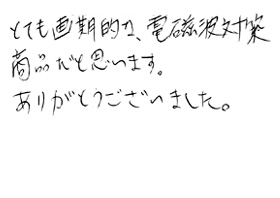 とても画期的な、電磁波対策
商品だと思います。
ありがとうございました。